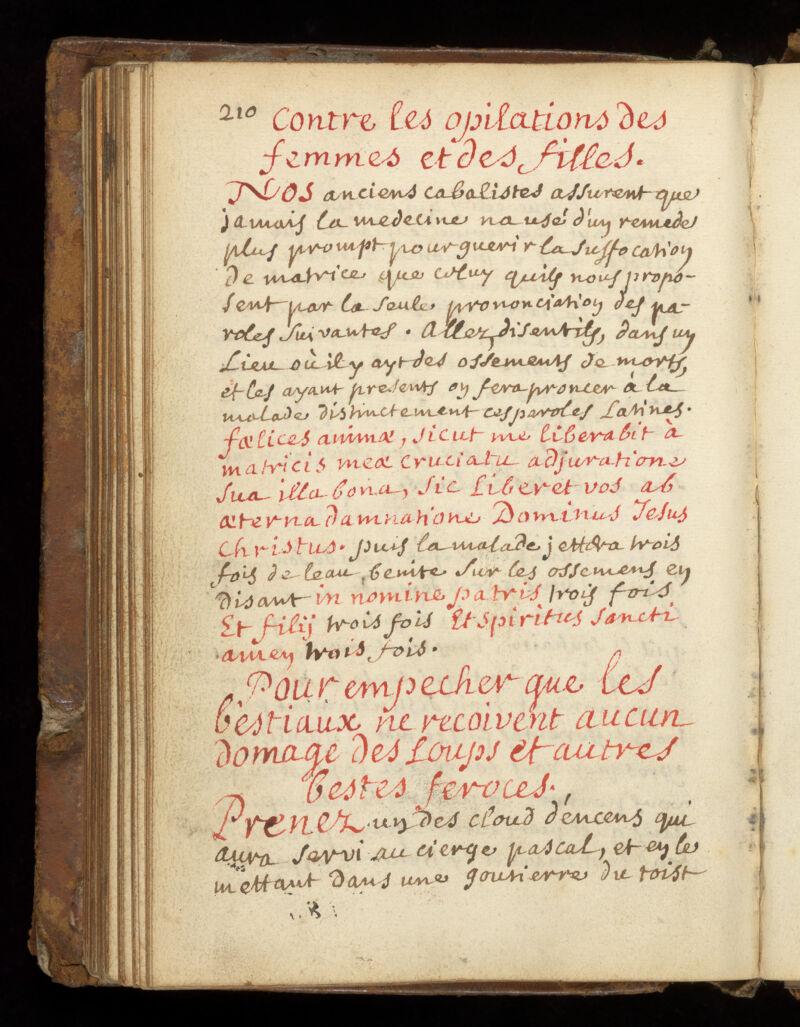 210 Contre les opilations des
femmes et des filles.
NOS anciens cabalistes assurent que
jamais la medecine na usé d'uy remede
plus prompt pour guerir la suffocatioy
De matrice que celuy quils nous propo-
sent par la seule prononciatioy des pa-
roles suivantes. Allez, disentils, dans uy
Lieu où il y ayt des ossements de morts,
et les ayant presents oy fera proncer à la
malade distinctement ces paroles Latines.
fœlices animæ, sicut me liberabit à
matricis meæ cruciatu adjuratione
sua illa bona, sic Liberet vos ab
æterna damnatione Dominus Jesus
Christus. puis la malade jettera trois
fois de leau benite sur les ossemens ey
Disant in nomine patris trois fois
Et filij trois fois Et spiritus sancti
amey trois fois.
Pour empecher que les
bestiaux ne recoivent aucun
domage des Loups et autres
bestes feroces.
Prenez uy des cloud dencens qui
aura servi au cierge pascal, et ey le
mettant Dans une goutierre du toist